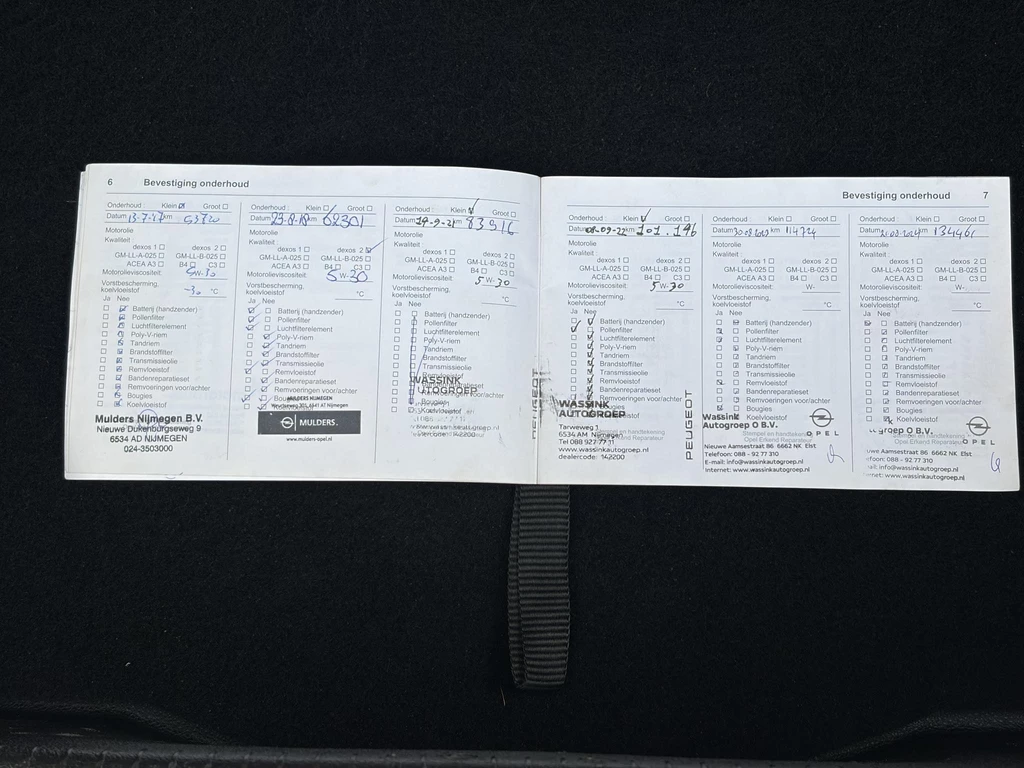 6 Bevestiging onderhoud
Onderhoud : Klein Groot
Datum 13-7-17 km 53720
Motorolie
Kwaliteit
dexos 1 dexos 2
GM-LL-A-025 GM-LL-B-025
ACEA A3 B4 C3
Motorolieviscositeit: 5W-30
Vorstbescherming,
koelvloeistof -30 °C
Ja Nee
Batterij (handzender)
Pollenfilter
Luchtfilterelement
Poly-V-riem
Tandriem
Brandstoffilter
Transmissieolie
Remvloeistof
Bandenreparatieset
Remvoeringen voor/achter
Bougies
Koelvloeistof
Mulders Nijmegen B.V.
Nieuwe Dukenburgseweg 9
6534 AD NIJMEGEN
024-3503000
Onderhoud : Klein Groot
Datum 23-8-18 km 62301
Motorolie
Kwaliteit:
dexos 1 dexos 2
GM-LL-A-025 GM-LL-B-025
ACEA A3 B4 C3
Motorolieviscositeit: 5 W-30
Vorstbescherming,
koelvloeistof °C
Ja Nee
Batterij (handzender)
Pollenfilter
Luchtfilterelement
Poly-V-riem
Tandriem
Brandstoffilter
Transmissieolie
Remvloeistof
Bandenreparatieset
Remvoeringen voor/achter
MULDERS NIJMEGEN
MULDERS.
www.mulders-opel.nl
Onderhoud : Klein Groot
Datum 14-9-21 83516
Motorolie
Kwaliteit:
dexos 1 dexos 2
GM-LL-A-025 GM-LL-B-025
ACEA A3 B4 C3
Motorolieviscositeit: 5 W-30
Vorstbescherming,
koelvloeistof °C
Ja Nee
Batterij (handzender)
Pollenfilter
Luchtfilterelement
Poly-V-riem
Tandriem
Brandstoffilter
Transmissieolie
Remvloeistof
Bandenreparatieset
Remvoeringen voor/achter
Bougies
Koelvloeistof
WASSINK
AUTOGROEP
Bevestiging onderhoud 7
Onderhoud : Klein Groot
Datum 08-09-22 km 101.196
Motorolie
Kwaliteit:
dexos 1 dexos 2
GM-LL-A-025 GM-LL-B-025
ACEA A3 B4 C3
Motorolieviscositeit: 5 W-30
Vorstbescherming,
koelvloeistof °C
Ja Nee
Batterij (handzender)
Pollenfilter
Luchtfilterelement
Poly-V-riem
Tandriem
Brandstoffilter
Transmissieolie
Remvloeistof
Bandenreparatieset
Remvoeringen voor/achter
Bougies
Koelvloeistof
WASSINK
AUTOGROEP
Tarweweg 1
6534 AM Nijmegen
Tel 088 927 77 11
www.wassinkautogroep.nl
dealercode: 142200
PEUGEOT
Onderhoud : Klein Groot
Datum 30 08 2023 km 114724
Motorolie
Kwaliteit:
dexos 1 dexos 2
GM-LL-A-025 GM-LL-B-025
ACEA A3 B4 C3
Motorolieviscositeit: W-
Vorstbescherming,
koelvloeistof °C
Ja Nee
Batterij (handzender)
Pollenfilter
Luchtfilterelement
Poly-V-riem
Tandriem
Brandstoffilter
Transmissieolie
Remvloeistof
Bandenreparatieset
Remvoeringen voor/achter
Bougies
Koelvloeistof
Wassink
Autogroep O B.V.
OPEL
Stempel en handtekening
Opel Erkend Reparateur
Nieuwe Aamsestraat 86 6662 NK Elst
Telefoon: 088 - 92 77 310
E-mail: info@wassinkautogroep.nl
Internet: www.wassinkautogroep.nl
Onderhoud : Klein Groot
Datum km 134461
Motorolie
Kwaliteit:
dexos 1 dexos 2
GM-LL-A-025 GM-LL-B-025
ACEA A3 B4 C3
Motorolieviscositeit: W-
Vorstbescherming,
koelvloeistof °C
Ja Nee
Batterij (handzender)
Pollenfilter
Luchtfilterelement
Poly-V-riem
Tandriem
Brandstoffilter
Transmissieolie
Remvloeistof
Bandenreparatieset
Remvoeringen voor/achter
Bougies
Koelvloeistof
ogroep O B.V.
OPEL
Stempel en handtekening
Opel Erkend Reparateur
uwe Aamsestraat 86 6662 NK Elst
efoon: 088 - 92 77 310
ail: info@wassinkautogroep.nl
rnet: www.wassinkautogroep.nl